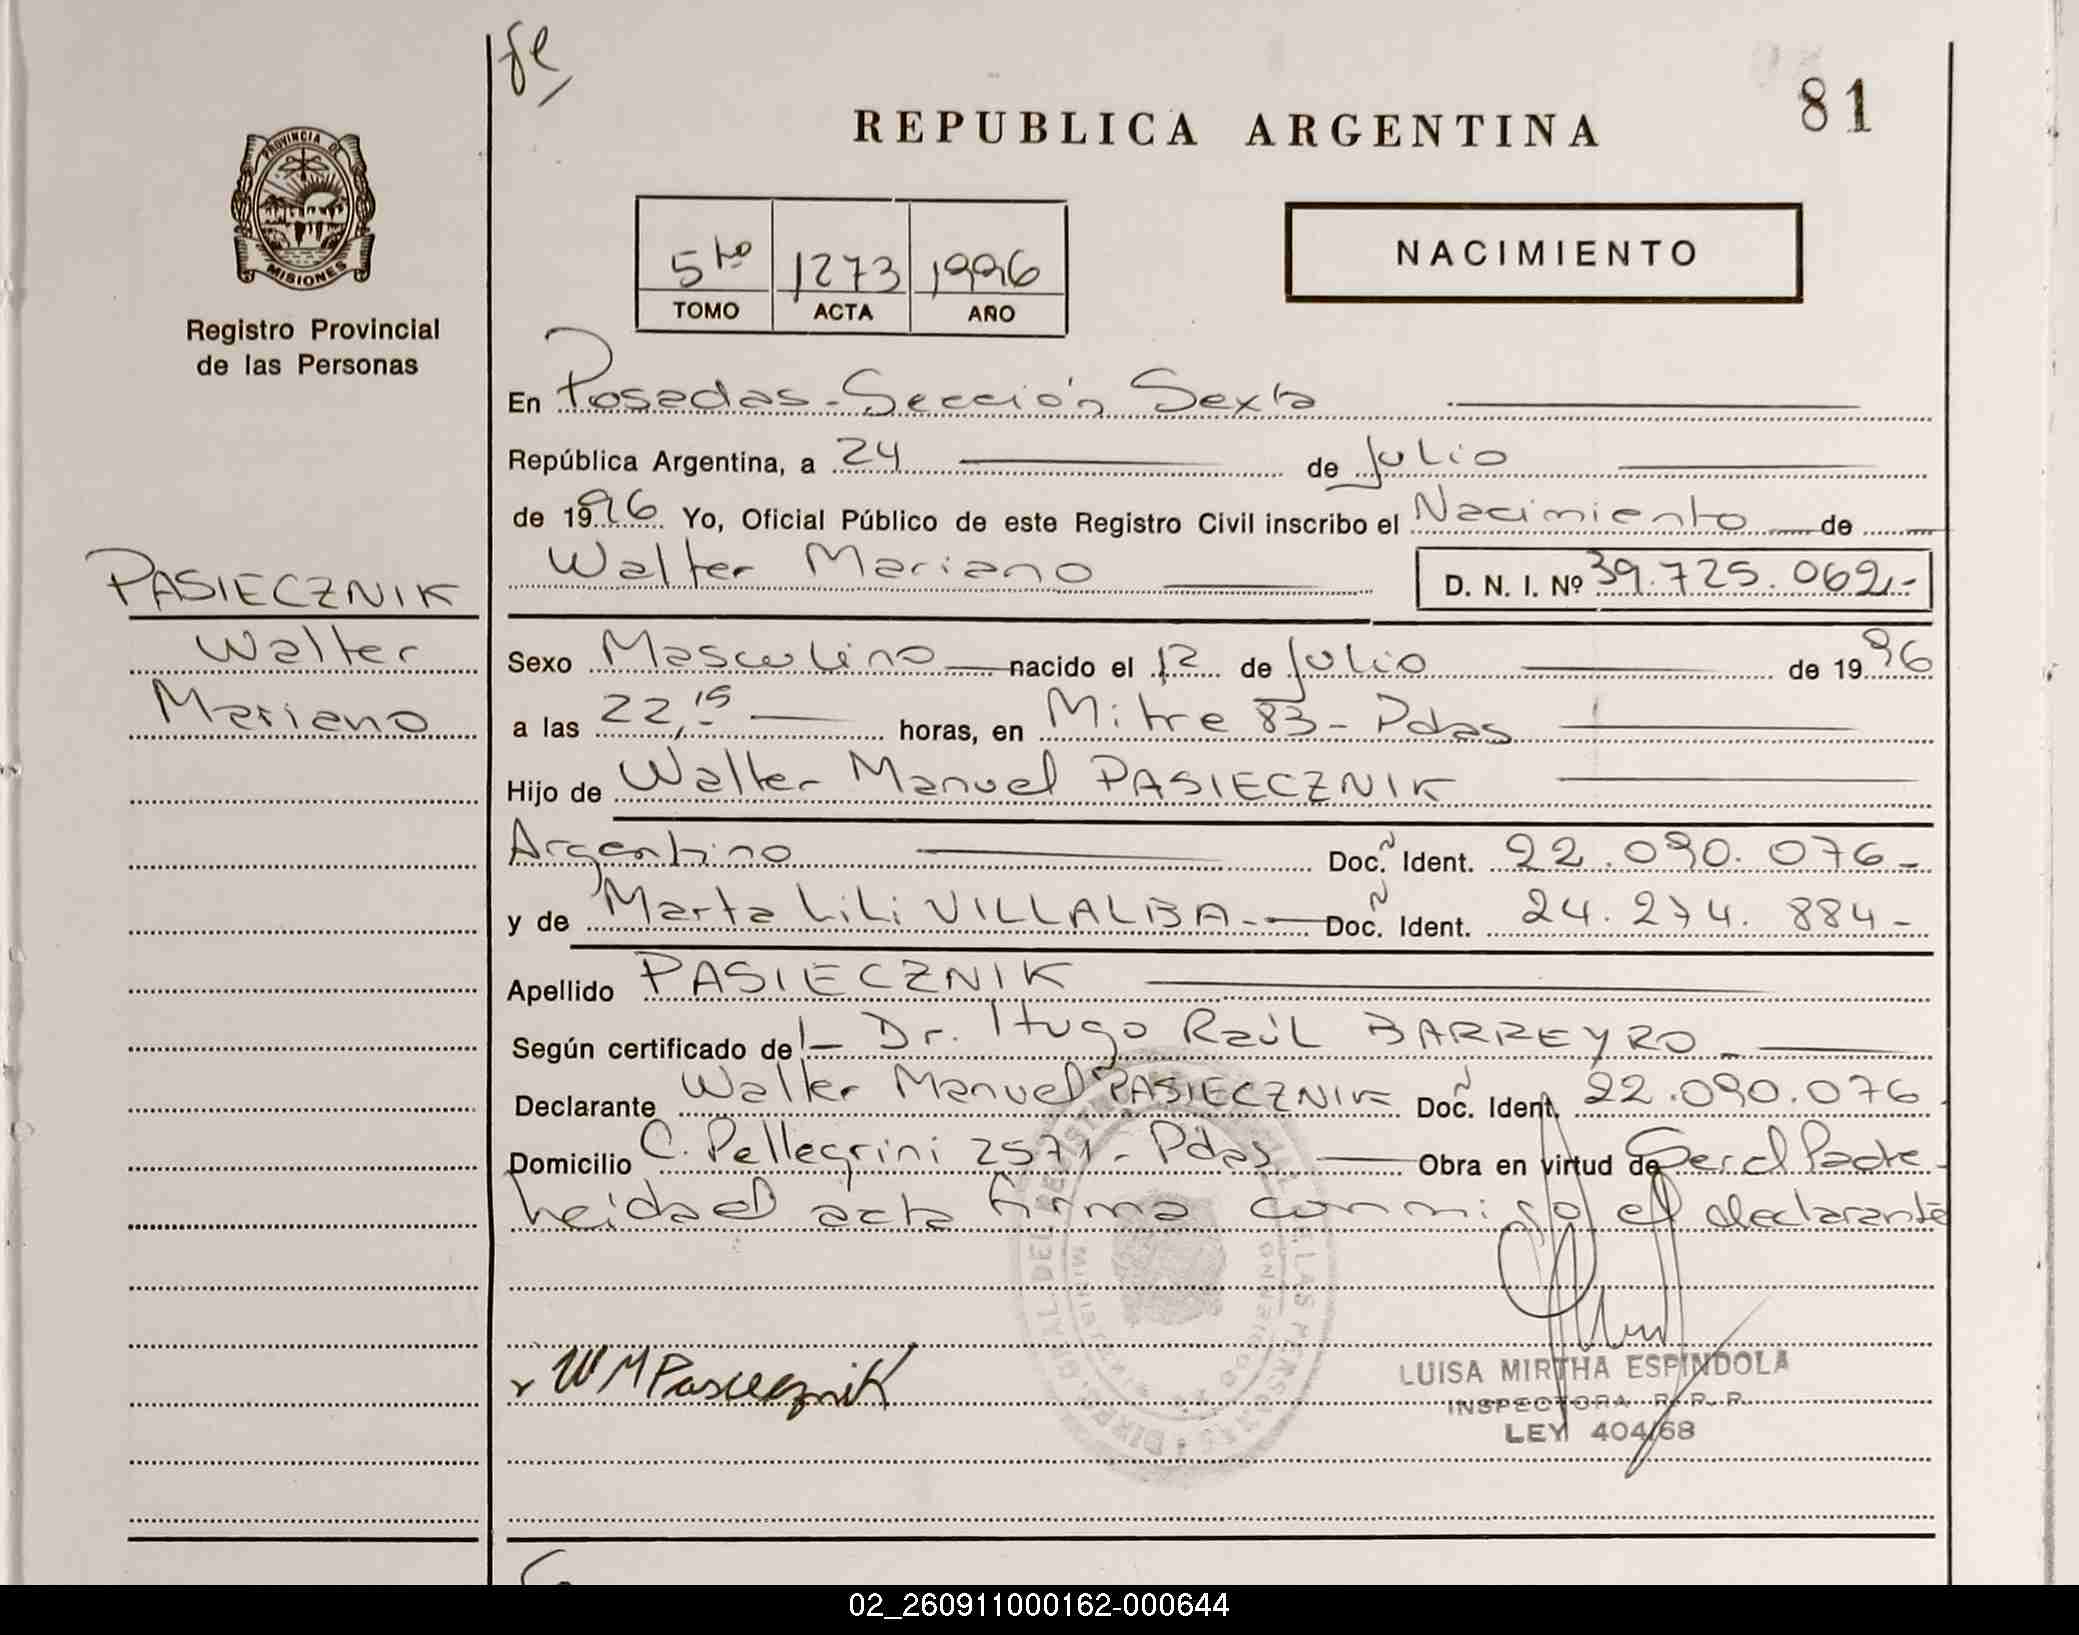 fe,
81
REPUBLICA ARGENTINA
PROVINCIA DE
MISIONES
Registro Provincial
de las Personas
5to 1273 1996
TOMO ACTA AÑO
NACIMIENTO
En Posadas - Sección Sexta
República Argentina, a 24 de Julio
de 1996 Yo, Oficial Público de este Registro Civil inscribo el Nacimiento de
Walter Mariano D. N. I. Nº 39.725.062.-
PASIECZNIK
Walter
Mariano
Sexo Masculino nacido el 12 de Julio de 1996
a las 22,15 horas, en Mitre 83 - Pdas
Hijo de Walter Manuel PASIECZNIK
Argentino Doc. Ident. 22.090.076-
y de Marta Lili VILLALBA.- Doc. Ident. 24.274.884-
Apellido PASIECZNIK
Según certificado del Dr. Hugo Raúl BARREYRO
Declarante Walter Manuel PASIECZNIK Doc. Ident. 22.090.076
Domicilio C. Pellegrini 2571 - Pdas Obra en virtud de Ser el Padre
Leida el acta firma conmigo el declarante
W M Pasiecznik
LUISA MIRTHA ESPINDOLA
INSPECTORA R. P. P.
LEY 404/68
02_260911000162-000644